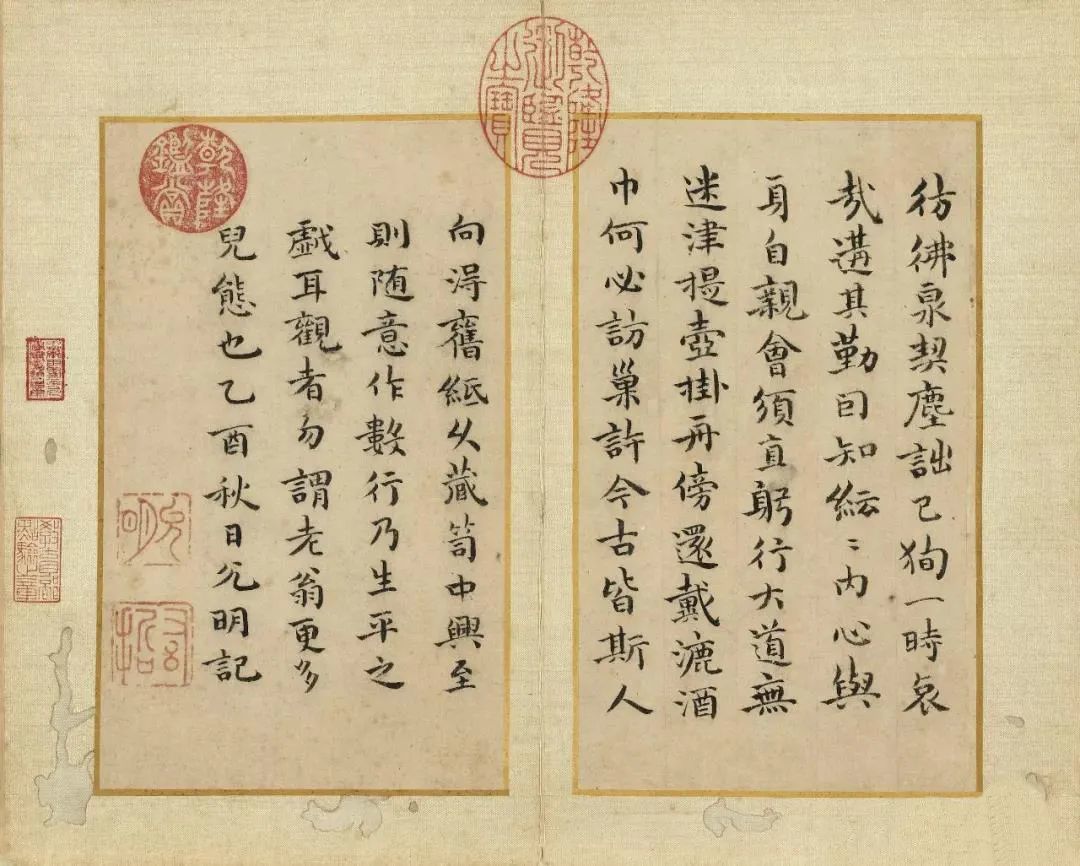 彷彿泉契塵詘已狥一時哀
哉遘其勤囙知紜〻內心與
身自親會須直躬行大道無
迷津提壺掛冊傍還戴漉酒
巾何必訪巢許今古皆斯人
向淂舊紙久藏笥中興至
則随意作數行乃生平之
戯耳觀者勿謂老翁更多
兒態也乙酉秋日允明記
乾隆御覽之寶
乾隆鑑賞
允明